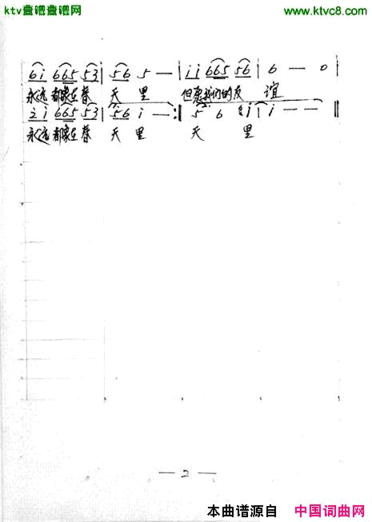 ktv查谱查谱网 www.ktvc8.com
6i 665 53 | 56 5 — | ii 665 56 | 6 — 0 |
永远都象在春 天 里 但愿我们的友 谊
2i 665 53 | 56 i — :|| 5 6 i | i — — ||
永远都象在春 天 里 天 里
— 2 —
本曲谱源自 中国词曲网